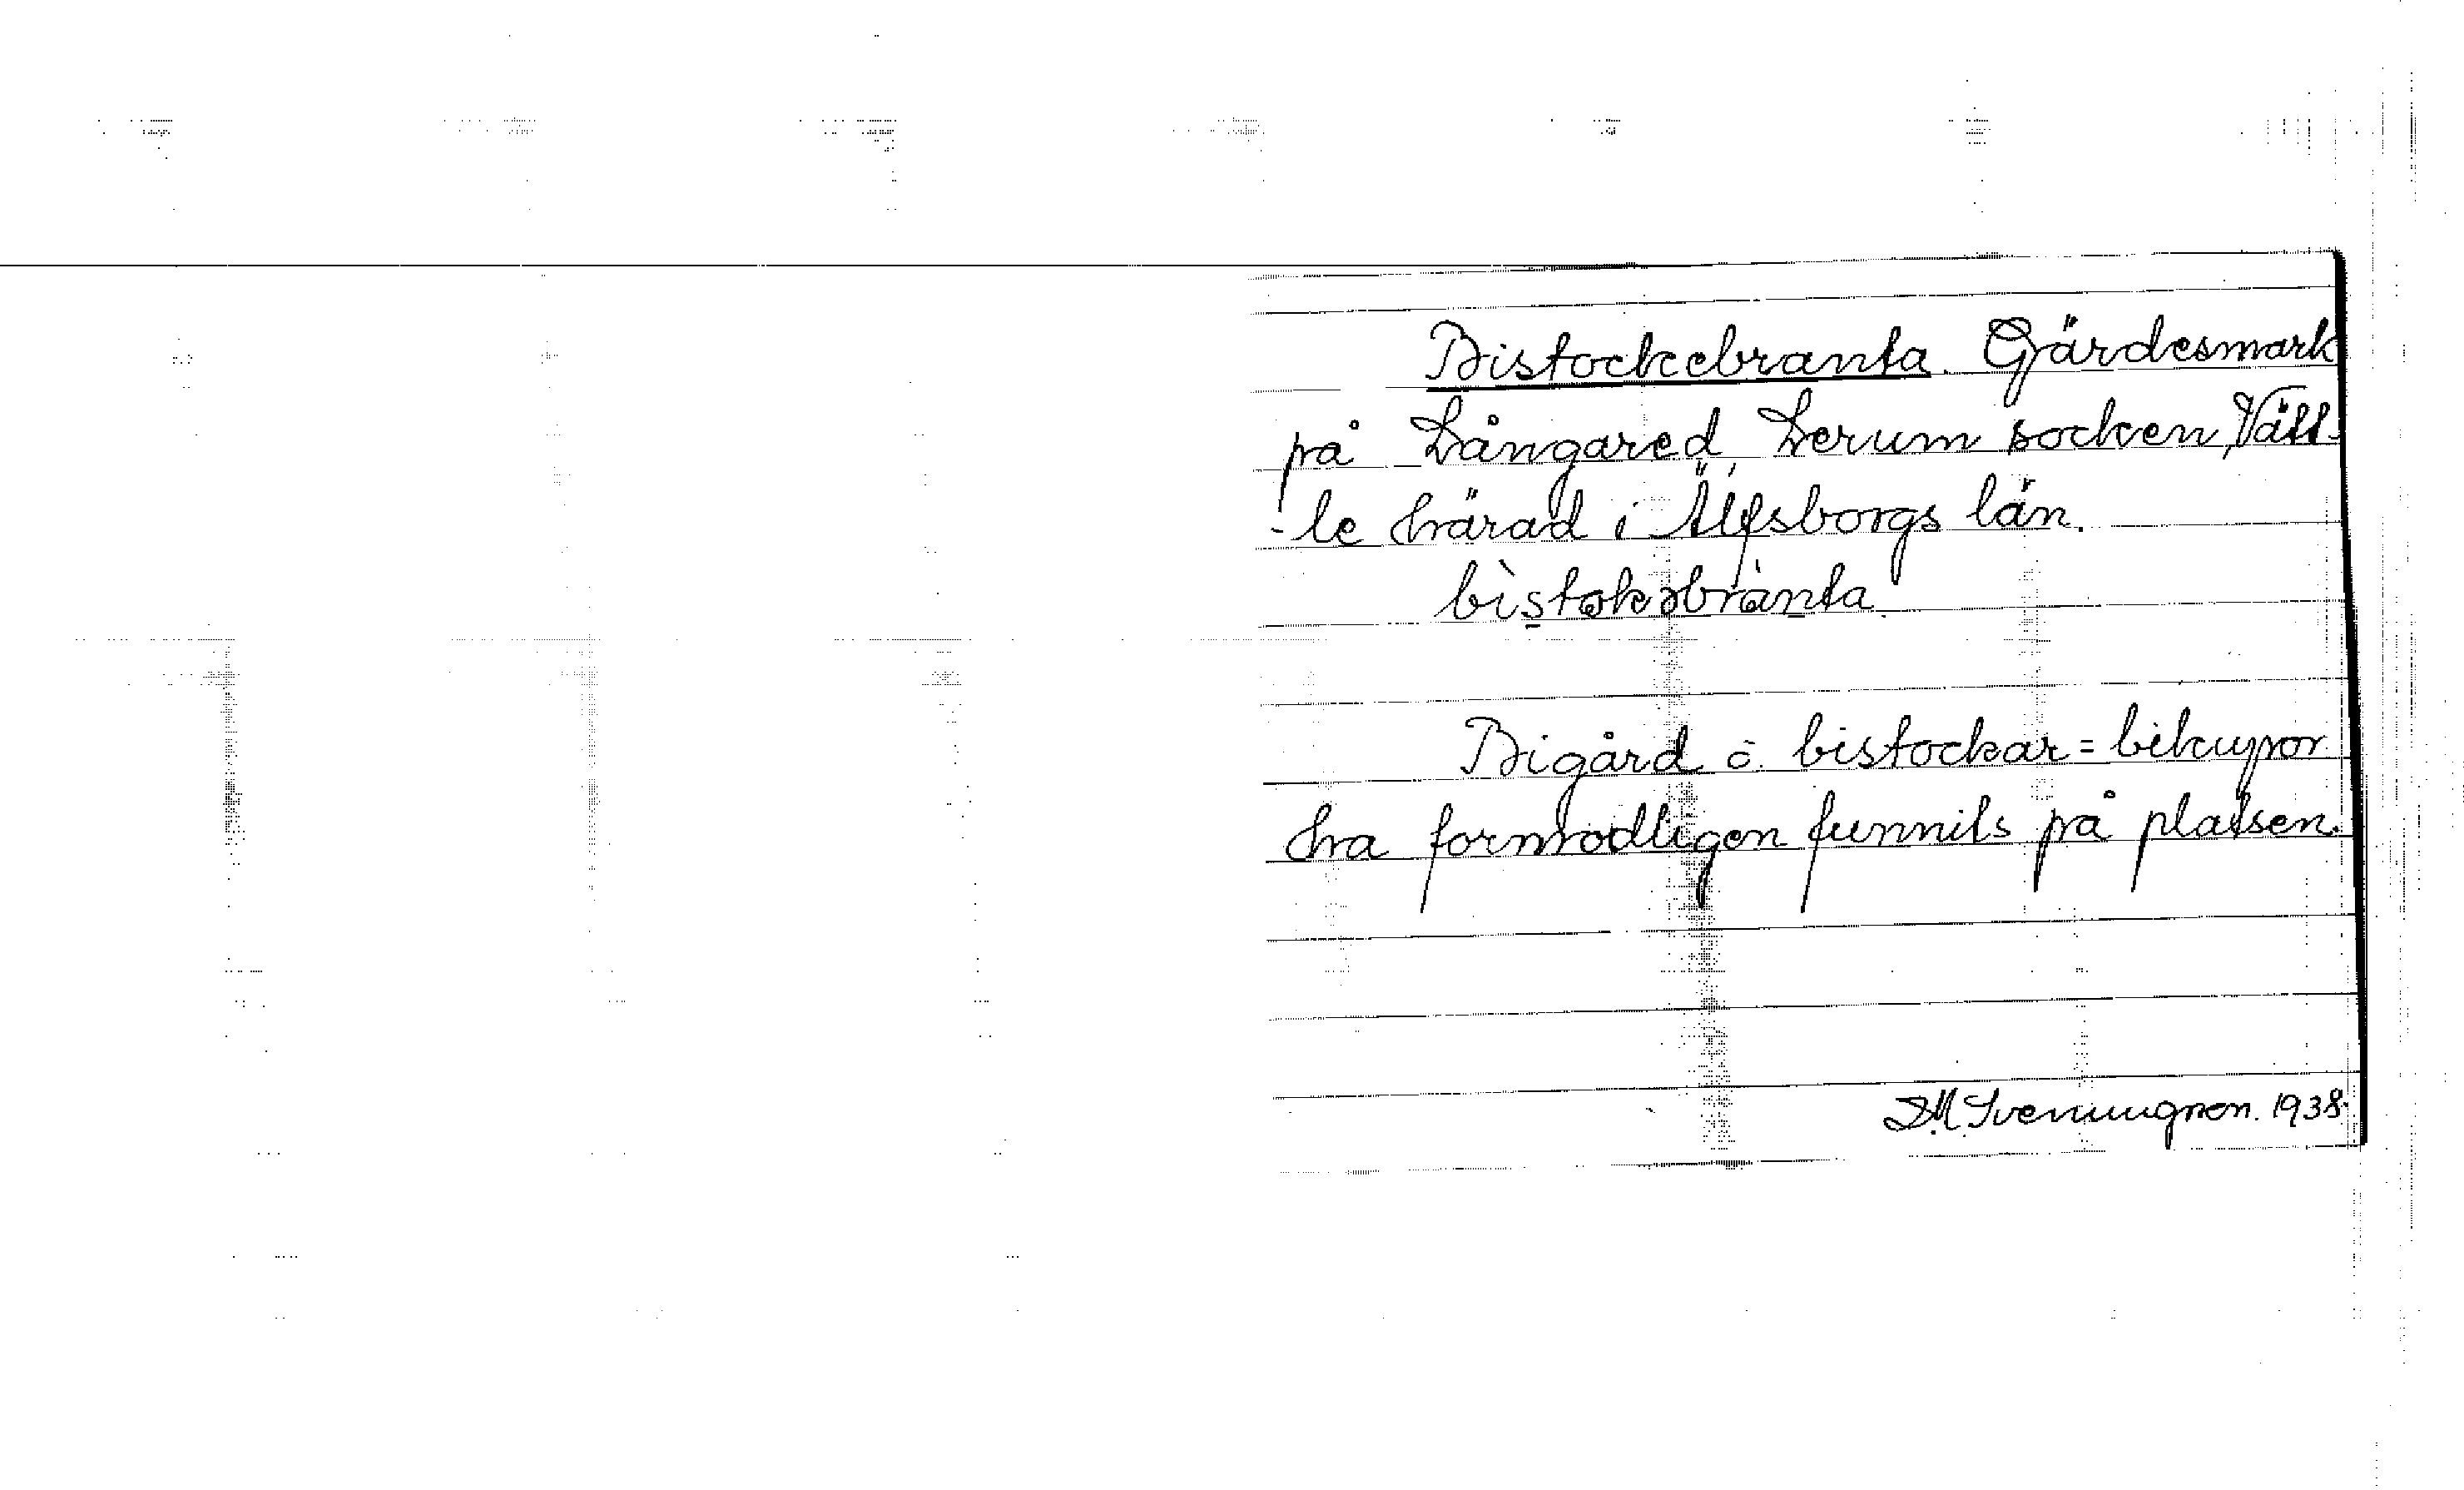 Bistockebranta. Gärdesmark
på Långared, Lerum socken, Vätt-
-le härad i Älfsborgs län.
bìstokəbrànta
Bigård o. bistockar = bikupor
ha förmodligen funnits på platsen.
D.M. Svenungson. 1938.